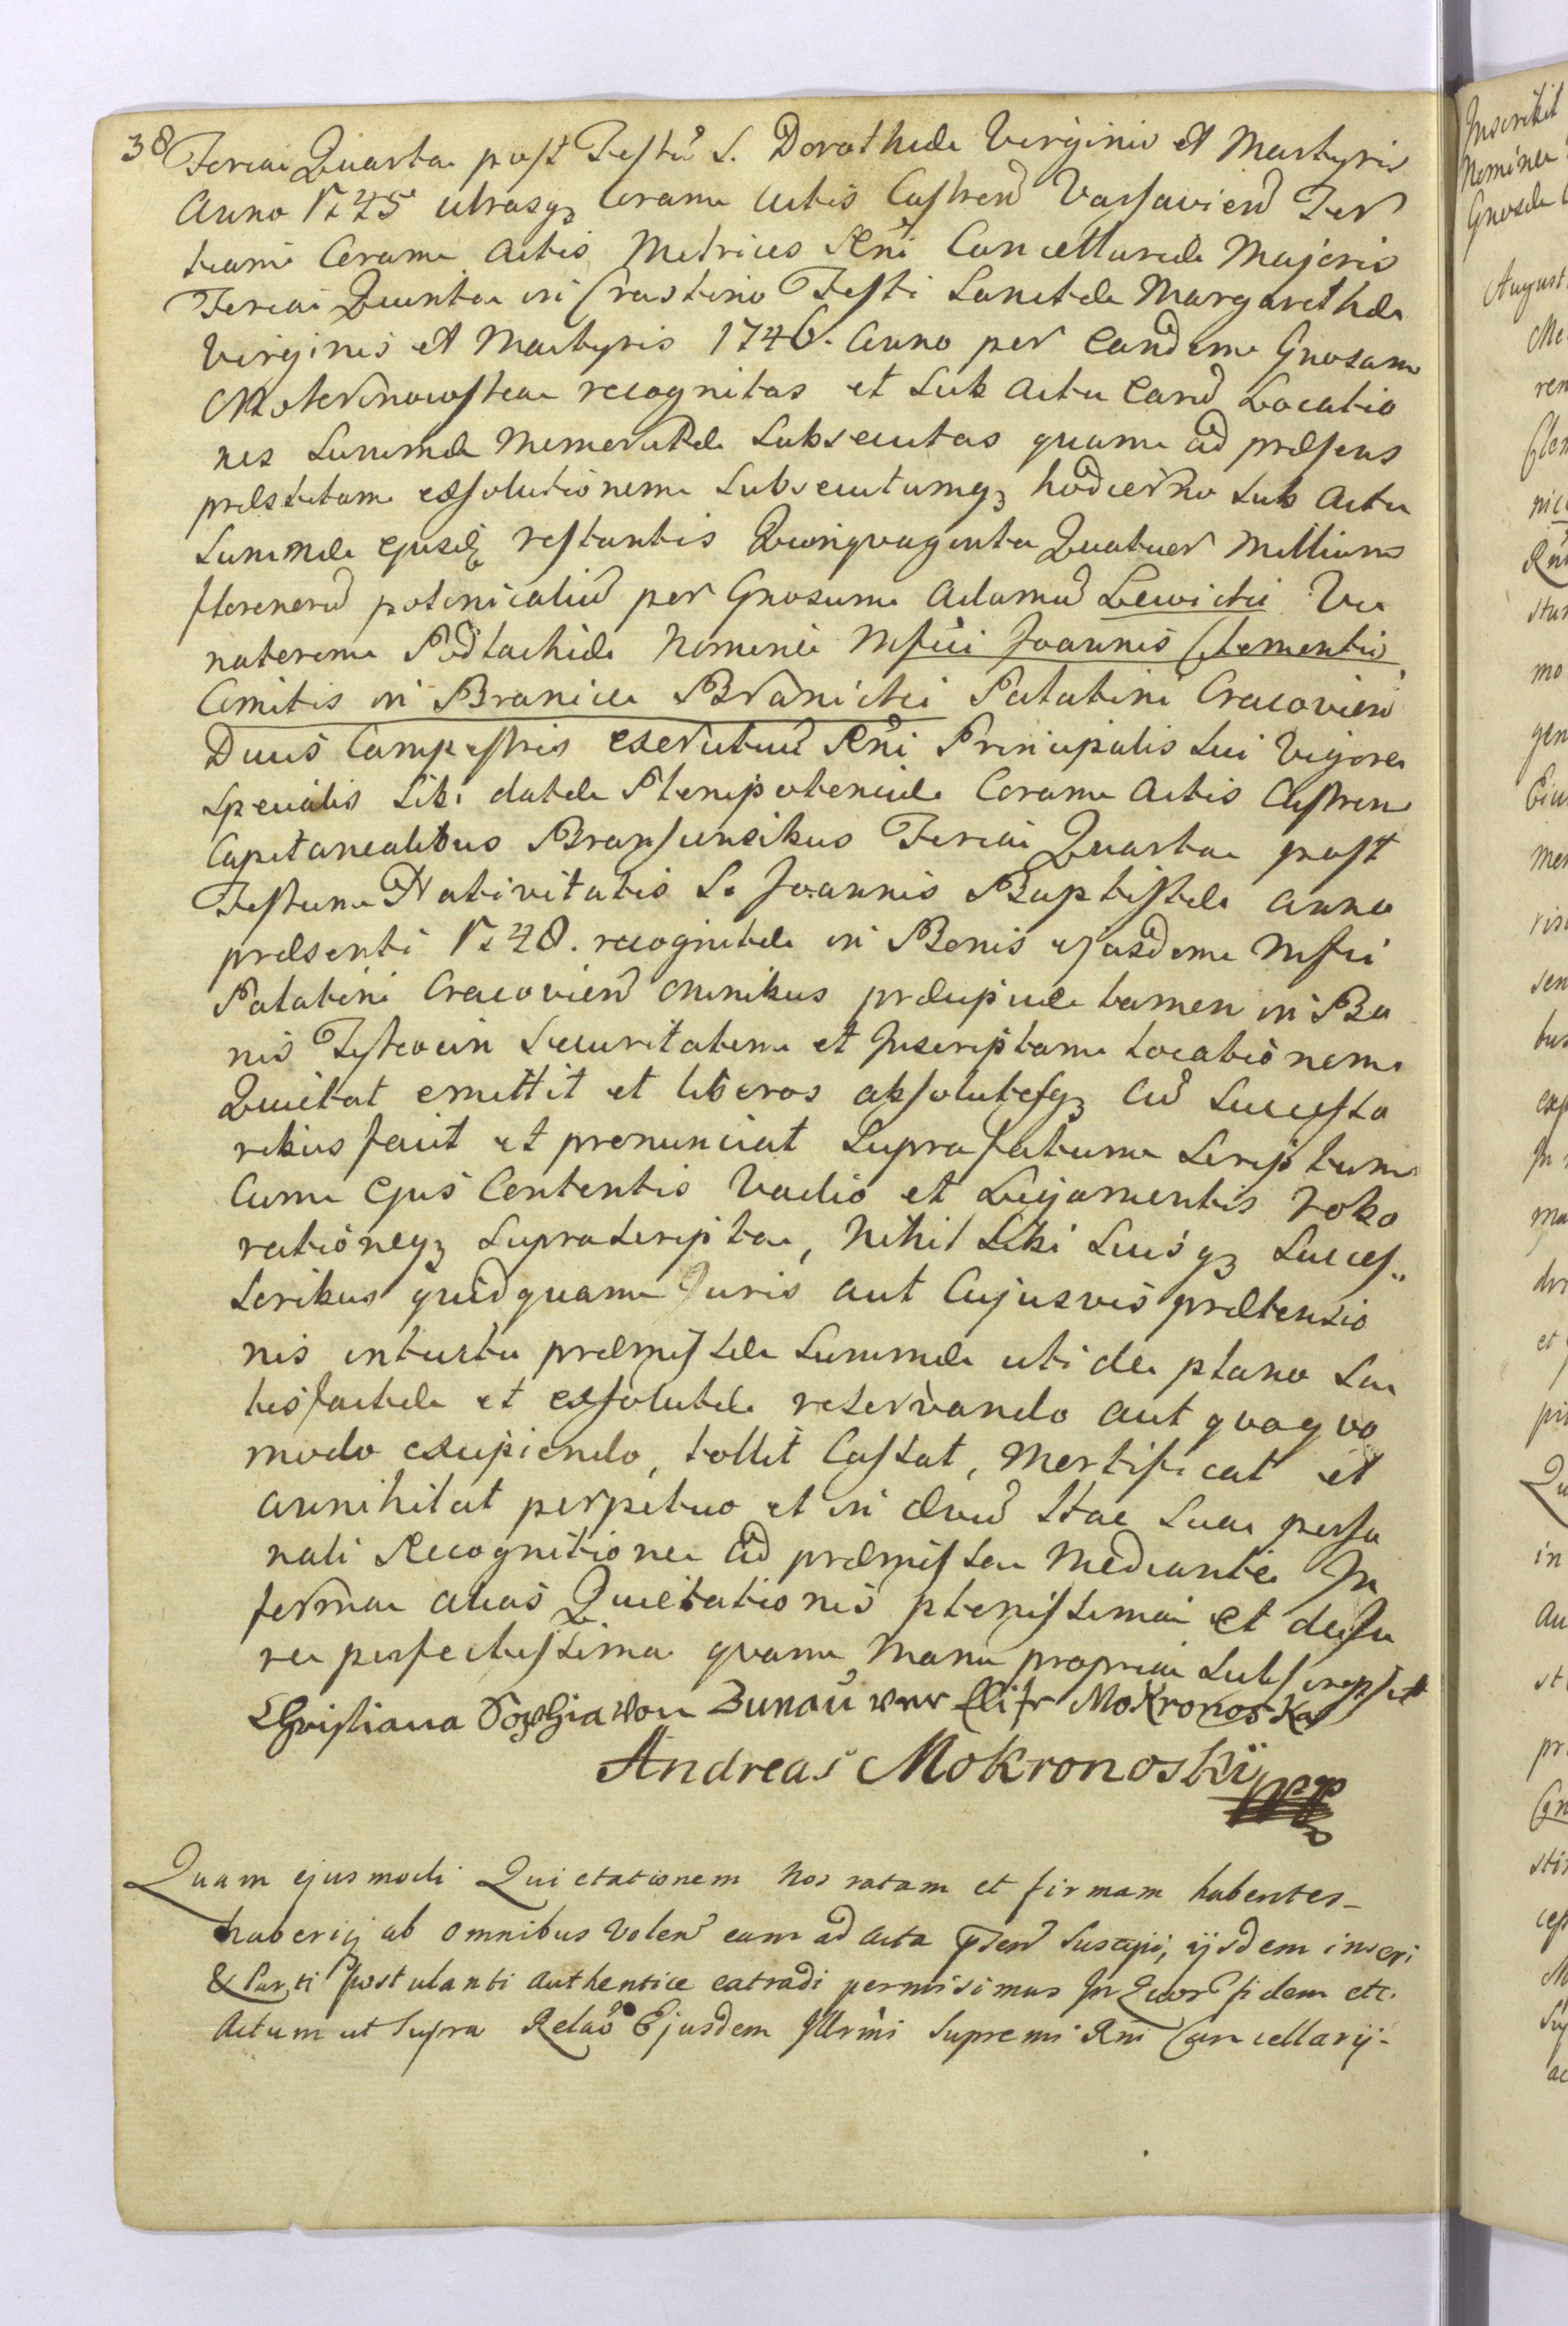 38 Feria Quarta post Festũ S. Dorothææ Virginis et Martyris
Anno 1745 utrasqȝ Coram Actis Castreñ Varsavieñ Ter
tiam Coram Actis Metrices Rñi Cancellariæ Majoris
Feria Quinta in Crastino Festi Sanctæ Margarethæ
Virginis et Martyris 1746. Anno per Eandem Gnosam
Mokronowska recognitas et Sub Actu Earũ Locatio
nes Summæ Memoratæ Subsecutas quam ad præsens
præstitam exsolutionem Subsecutamqȝ hodierno Sub Actu
Summæ Ejusdȝ restantis Quinquaginta Quatuor Millium
florenorũ polonicaliũ per Gnosum Adamũ Lewicki Ve
natorem Podlachiæ Nomine Mfici Joannis Clementis
Comitis in Branice Branicki Palatini Cracovieñ
Ducis Campestris Exercituũ Rñi Principalis Sui Vigore
Specialis Sibi datæ Plenipotenciæ Coram Actis Castren
Capitanealibus Branscensibus Feria Quarta post
Festum Nativitatis S. Joannis Baptistæ Anno
præsenti 1748. recognitæ in Bonis ejusdem Mfci
Palatini Cracovieñ Omnibus præcipue tamen in Bo
nis Tykocin Securitatem et Inscriptam Locationem
Quietat emittit et liberos absolutosqȝ Cũ Successo
ribus facit et pronunciat Suprafatum Scriptum
Cum Ejus Contentis Vadio et Ligamentis Robo
rationeqȝ Suprascripta, Nihil Sibi Suisqȝ Succes„
Soribus quidquam Juris aut Cujusvis prætensio
nis intuitu præmissæ Summæ uti de plano Sa
tisfactæ et exsolutæ reservando aut quoquo
modo excipiendo, tollit Cassat, Mortificat et
annihilat perpetuo et in ævũ Hac Sua perso
nali Recognitione ad præmissa Mediante In
forma alias Quietationis plenissima et de Ju
re perfectissima quam Manu propria Subscripsit
Christiana Sophia von Bunau Mokronoska
Andreas Mokronoskÿ mpp
Quam ejusmodi Quietationem Nos ratam et firmam habentes_
haberiqȝ ab omnibus Voleñ eam ad acta p̃señ Suscipi, ijsdem inscri
& Parti postulanti Authentice extradi permisimus In Quorũ fidem etc.
Actum ut Supra Relaõ Ejusdem Illrmi Supremi Rni Cancellarij_